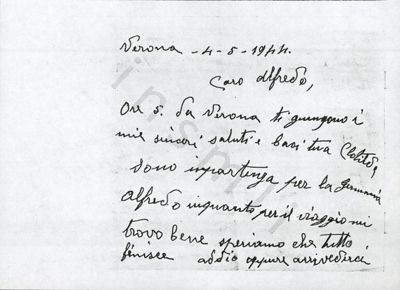 Verona - 4-5-1944.
Caro Alfredo,
Ore 5. Da Verona ti giungono i
miei sinceri saluti e baci tua Clotilde,
sono inpartenza per la Germania
Alfredo inquanto per il viaggio mi
trovo bene speriamo che tutto
finisce addio oppure arrivederci
insmli